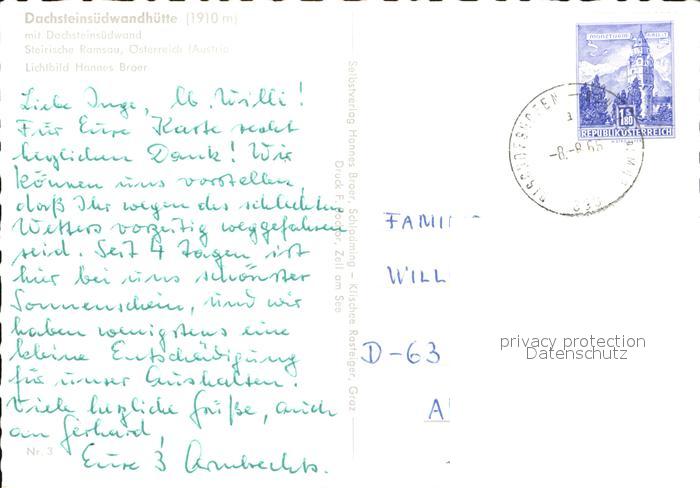 Dachsteinsüdwandhütte (1910 m)
mit Dachsteinsüdwand
Steirische Ramsau, Österreich (Austria
Lichtbild Hannes Broer
Liebe Inge, lb. Willi!
Für Eure Karte recht
herzlichen Dank! Wir
können uns vorstellen,
daß Ihr wegen des schlechten
Wetters vorzeitig weggefahren
seid. Seit 4 Tagen ist
hier bei uns schönster
Sonnenschein, und wir
haben wenigstens eine
kleine Entschädigung
für unser Aushalten.
Viele herzliche Grüße, auch
an Gerhard,
Eure 3 Armbrechts.
Nr. 3
Selbstverlag Hannes Broer, Schladming – Klischee Rasteiger, Graz
Druck F. Gell am See
MÜNZTURM HALL I. T.
S 1.80
REPUBLIK ÖSTERREICH
-8.-8.65
FAMI
WILL
D-63
A
privacy protection
Datenschutz